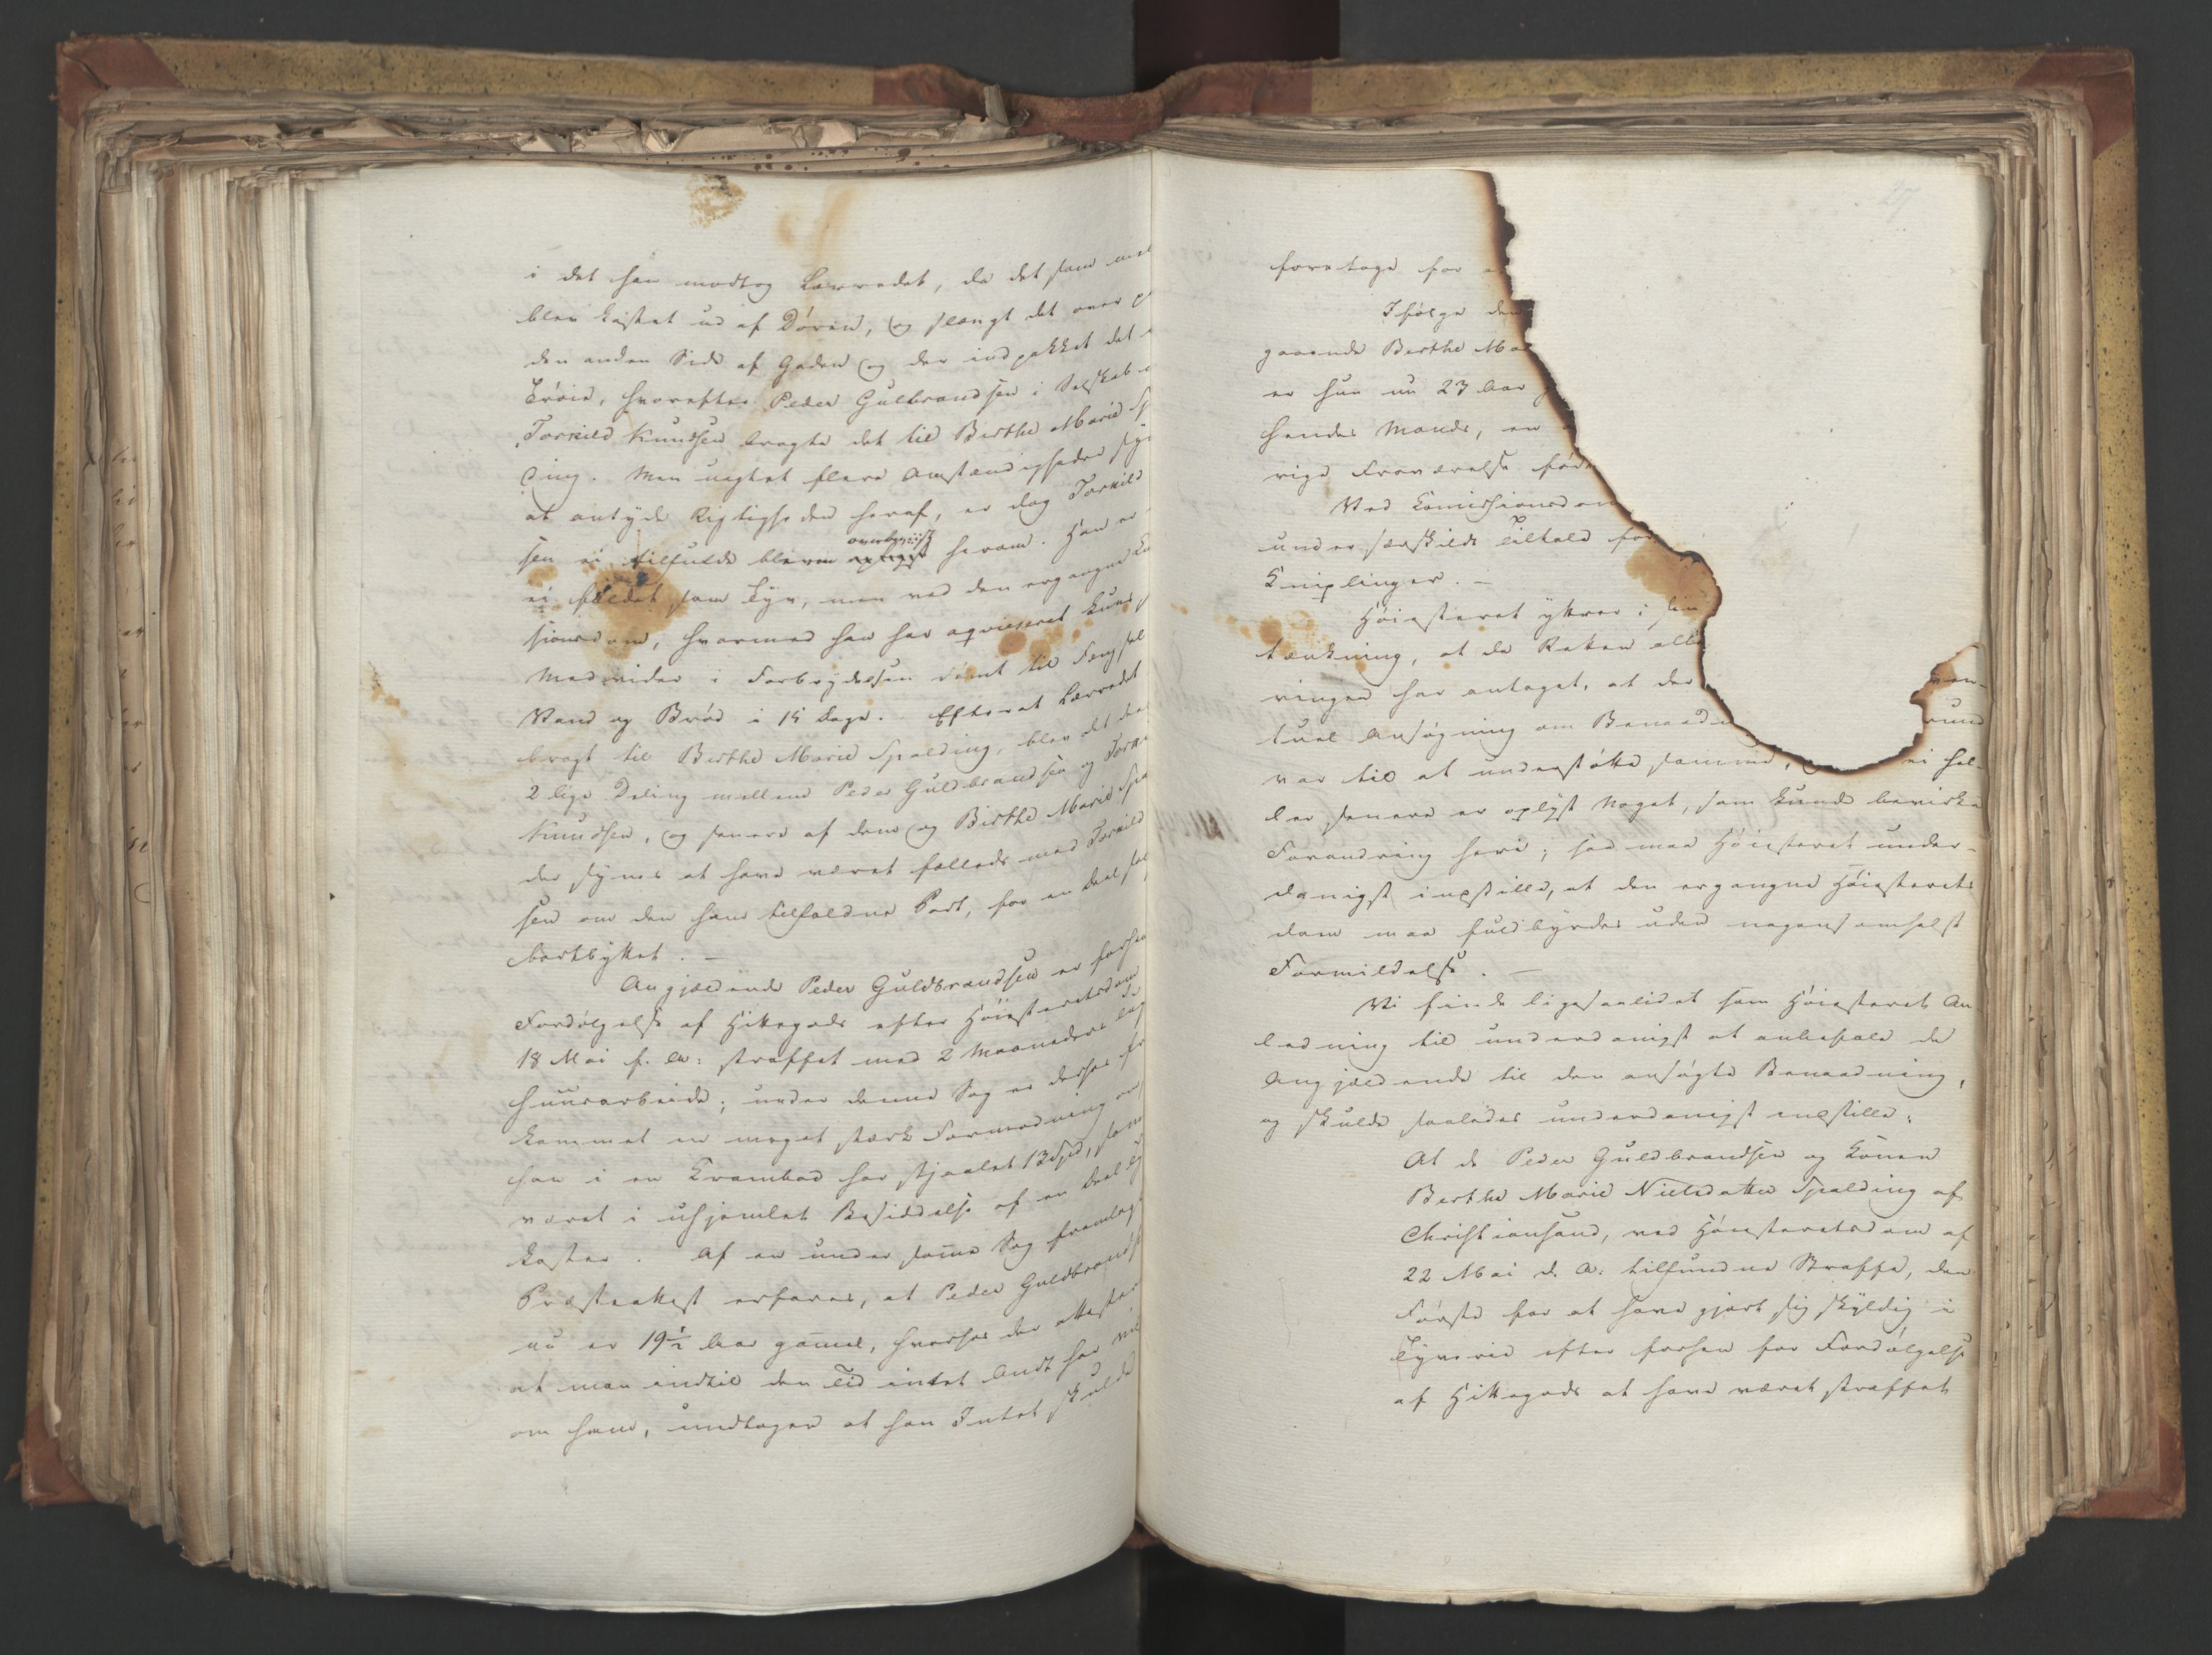 i det han modtog Lærredet, da det som
blev kastet ud af Døren, og slængt det over
den anden Side af Gaden og der indpakket det
Trøie, hvorefter Peder Gulbrandsen i Selskab
Torkild Knudsen bragte det til Berthe Marie
ding. Men uagtet flere Omstændigheder
at antyde Rigtigheden heraf, er dog Torkild
sen ei tilfulde bleven overbeviist herom. Han er
ei fældet som Tyv, men ved den ergangne
sionsdom, hvormed han har aqviesceret kuns
Medvider i Forbrydelsen dømt til Fængsel
Vand og Brød i 15 Dage. Efterat Lærredet
bragt til Berthe Marie Spalding, blev det
2 lige Deling mellem Peder Guldbrandsen og
Knudsen, og senere af dem og Birthe Marie
der synes at have været fælleds med Torkild
sen om den ham tilfaldne Part, for en Deel
bortbyttet. –
Angjældende Peder Guldbrandsen er forhen
Fordølgelse af Hittegods efter Høiesteretsdom
18 Mai f. A: straffet med 2 Maaneders
huusarbeide; under denne Sag er derhos
kommet en meget stærk Formodning om
han i en Krambod har stjaalet 13 Spd, som
været i uhjemlet Besiddelse af en Deel
koster. Af en under samme Sag fremlagt
Præsteattest erfares, at Peder Guldbrands
nu er 19½ Aar gamel, hvorhos der attesteres
at man indtil den Tid intet Andet har
om ham, undtagen at han Intet skulde
27
foretage for
Ifølge den
gaaende Berthe Ma
er hun nu 27 Aar
hendes Mands, en
rige Fraværelse fød
Ved Comissionsdom
under særskilt Tiltale for
Kniplinger. –
Høiesteret yttrer i sin
tænkning, at da Retten alle
ringen har antaget, at der
tuel Ansøgning om Benaadn
var til at understøtte samme, ei hel-
ler senere er oplyst Noget, som kunde bevirke
Forandring heri; saa maa Høiesteret under-
danigst indstille, at den ergangne Høiesterets
dom maa fuldbyrdes uden nogensomhelst
Formildelse. –
Vi finde ligesaalidet som Høiesteret An
ledning til underdanigst at anbefale de
Angjældende til den ansøgte Benaadning,
og skulde saaledes underdanigst indstille:
At de Peder Guldbrandsen og Konen
Berthe Marie Nielsdatter Spalding af
Christiansand, ved Høiesteretsdom af
22 Mai d. A: tilfundne Straffe, den
Første for at have gjort sig skyldig i
Tyverie efter forhen for Fordølgelse
af Hittegods at have været straffet